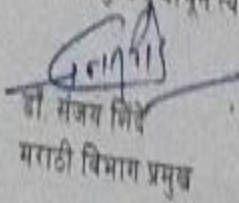 डॉ. संजय शिंदे
मराठी विभाग प्रमुख